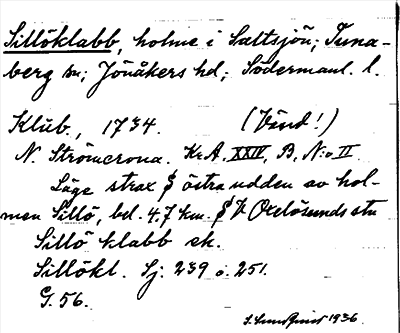 Sillöklabb, holme i Saltsjön; Tuna-
berg sn; Jönåkers hd; Södermanl. l.
Klub., 1734. (Vänd!)
N. Strömcrona. Kr.A. XXIV, B, N:o II.
Läge strax S östra udden av hol-
men Sillö, bel. 4,7 km. S V Oxelösunds stn
Sillö klabb ek.
Sillökl. Sj: 239 o. 251.
G. 56.
S. Lundquist 1936.